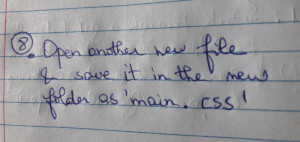 8. Open another new file
& save it in the new
folder as 'main. css'